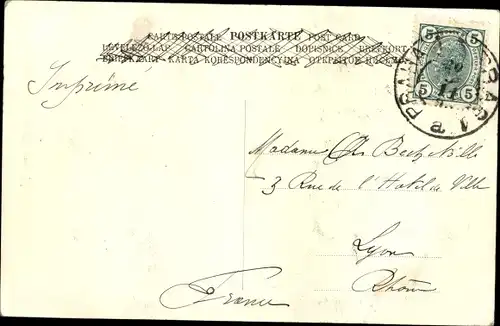 CARTE POSTALE POSTKARTE POST CARD
LEVELEZŐ-LAP CARTOLINA POSTALE DOPISNICE BREFKORT
BRIEFKAART KARTA KORESPONDENCYJNA
5 5
5 5
PRAHA PRAG 1
a
Imprimé
Madame
3 Rue de l'Hotel de Ville
Lyon
Rhône
France